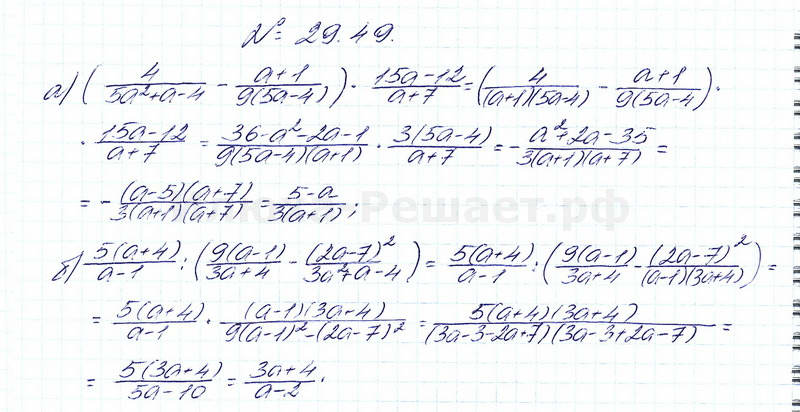 № 29.49.
а) (4/(5a²+a-4) - (a+1)/(9(5a-4))) · (15a-12)/(a+7) = (4/((a+1)(5a-4)) - (a+1)/(9(5a-4))) ·
· (15a-12)/(a+7) = (36-a²-2a-1)/(9(5a-4)(a+1)) · 3(5a-4)/(a+7) = -(a²+2a-35)/(3(a+1)(a+7)) =
= -((a-5)(a+7))/(3(a+1)(a+7)) = (5-a)/(3(a+1));
б) 5(a+4)/(a-1) : (9(a-1)/(3a+4) - (2a-7)²/(3a²+a-4)) = 5(a+4)/(a-1) : (9(a-1)/(3a+4) - (2a-7)²/((a-1)(3a+4))) =
= 5(a+4)/(a-1) · ((a-1)(3a+4))/(9(a-1)²-(2a-7)²) = (5(a+4)(3a+4))/((3a-3-2a+7)(3a-3+2a-7)) =
= 5(3a+4)/(5a-10) = (3a+4)/(a-2).
Решает.рф